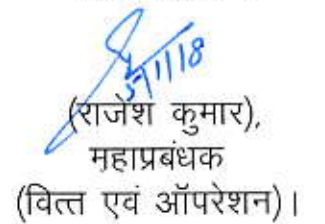 5/1/18
(राजेश कुमार),
महाप्रबंधक
(वित्त एवं ऑपरेशन)।